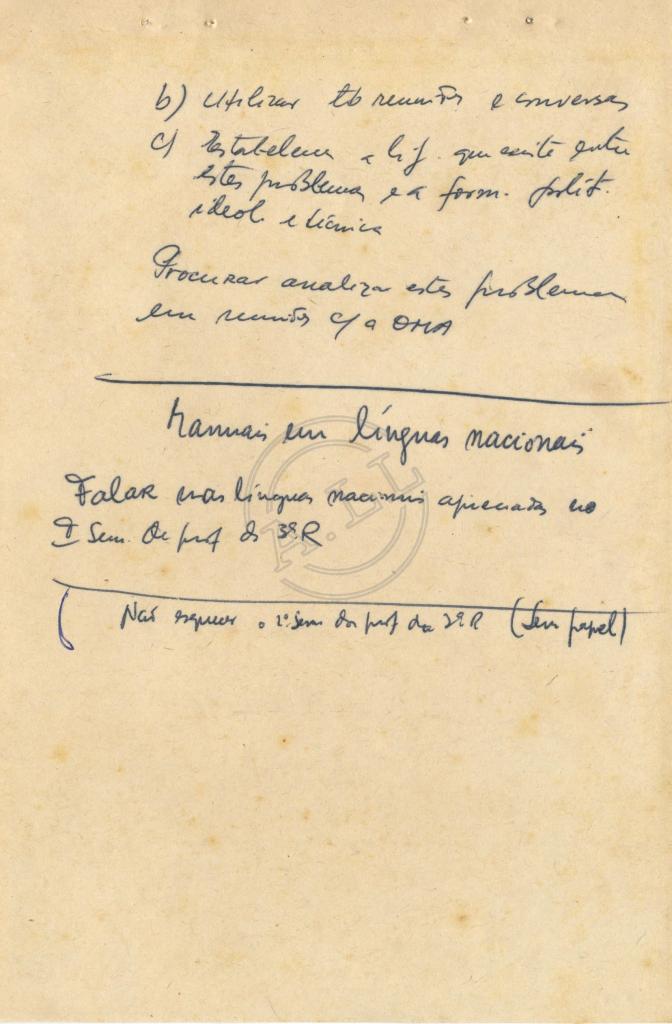 b) Utilizar tb reuniões e conversas
c) Estabelecer a lig. que existe entre
estes problemas e a form. polít.
ideol. e técnica
Procurar analizar estes problemas
em reuniões c/ a OMA
Manuais em línguas nacionais
Falar nas línguas nacionais no
I Sem. de prof da 3ª R
Não esquecer o 1º Sem dos prof da 3ª R (Seu papel)
A.LL